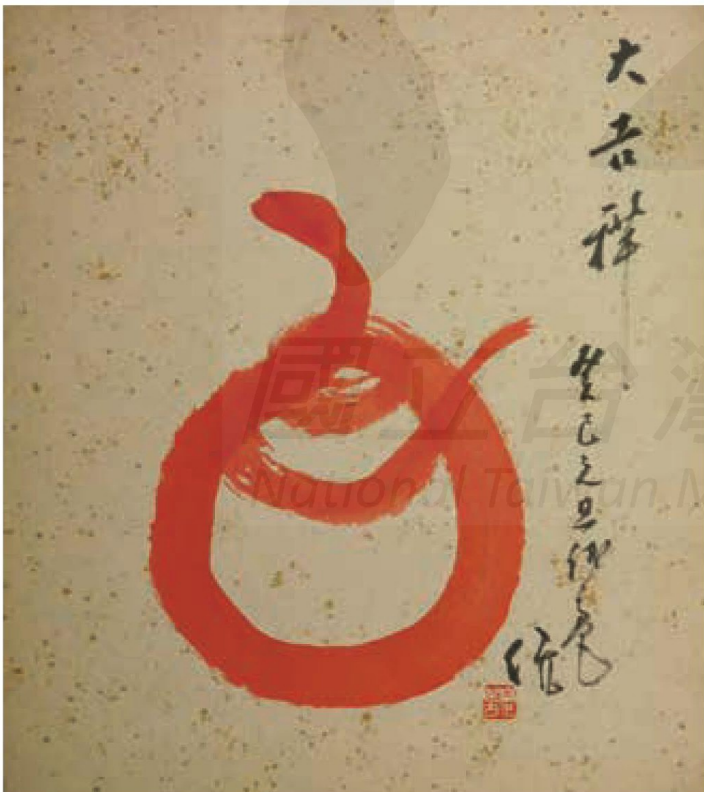 大吉祥
癸巳元旦
國立台灣
National Taiwan M